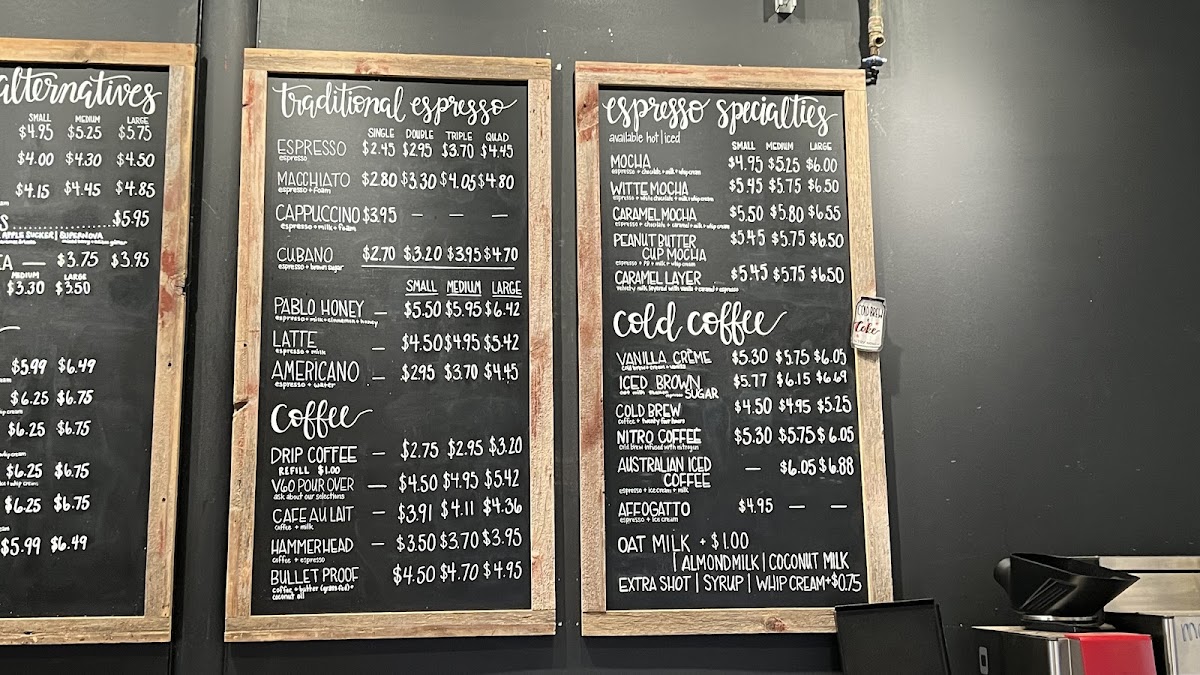 alternatives
SMALL MEDIUM LARGE
$4.95 $5.25 $5.75
$4.00 $4.30 $4.50
$4.15 $4.45 $4.85
S..............$5.95
APPLE SUCKER | SUPERNOVA
— $3.75 $3.95
MEDIUM LARGE
$3.30 $3.50
$5.99 $6.49
$6.25 $6.75
$6.25 $6.75
$6.25 $6.75
$6.25 $6.75
$5.99 $6.49
traditional espresso
SINGLE DOUBLE TRIPLE QUAD
ESPRESSO $2.45 $2.95 $3.70 $4.45
espresso
MACCHIATO $2.80 $3.30 $4.05 $4.80
espresso + foam
CAPPUCCINO $3.95 — — —
espresso + milk + foam
CUBANO $2.70 $3.20 $3.95 $4.70
espresso + brown sugar
SMALL MEDIUM LARGE
PABLO HONEY — $5.50 $5.95 $6.42
espresso + milk + cinnamon + honey
LATTE — $4.50 $4.95 $5.42
espresso + milk
AMERICANO — $2.95 $3.70 $4.45
espresso + water
Coffee
DRIP COFFEE — $2.75 $2.95 $3.20
REFILL $1.00
V60 POUR OVER — $4.50 $4.95 $5.42
ask about our selections
CAFE AU LAIT — $3.91 $4.11 $4.36
coffee + milk
HAMMERHEAD — $3.50 $3.70 $3.95
coffee + espresso
BULLET PROOF $4.50 $4.70 $4.95
coffee + butter (grass fed) +
coconut oil
espresso specialties
available hot | iced
SMALL MEDIUM LARGE
MOCHA $4.95 $5.25 $6.00
espresso + chocolate + milk + whip cream
WITTE MOCHA $5.45 $5.75 $6.50
espresso + white chocolate + milk + whip cream
CARAMEL MOCHA $5.50 $5.80 $6.55
espresso + chocolate + caramel + milk + whip cream
PEANUT BUTTER $5.45 $5.75 $6.50
CUP MOCHA
espresso + PB + milk + whip cream
CARAMEL LAYER $5.45 $5.75 $6.50
velvety milk layered with vanilla + caramel + espresso
cold coffee
VANILLA CRÈME $5.30 $5.75 $6.05
cold brew + cream + vanilla
ICED BROWN $5.77 $6.15 $6.69
SUGAR
COLD BREW $4.50 $4.95 $5.25
coffee + twenty four hours
NITRO COFFEE $5.30 $5.75 $6.05
cold brew infused with nitrogen
AUSTRALIAN ICED — $6.05 $6.88
COFFEE
espresso + ice cream + milk
AFFOGATTO $4.95 — —
espresso + ice cream
OAT MILK + $1.00
| ALMONDMILK | COCONUT MILK
EXTRA SHOT | SYRUP | WHIP CREAM +$0.75
COLD BREW
Coke